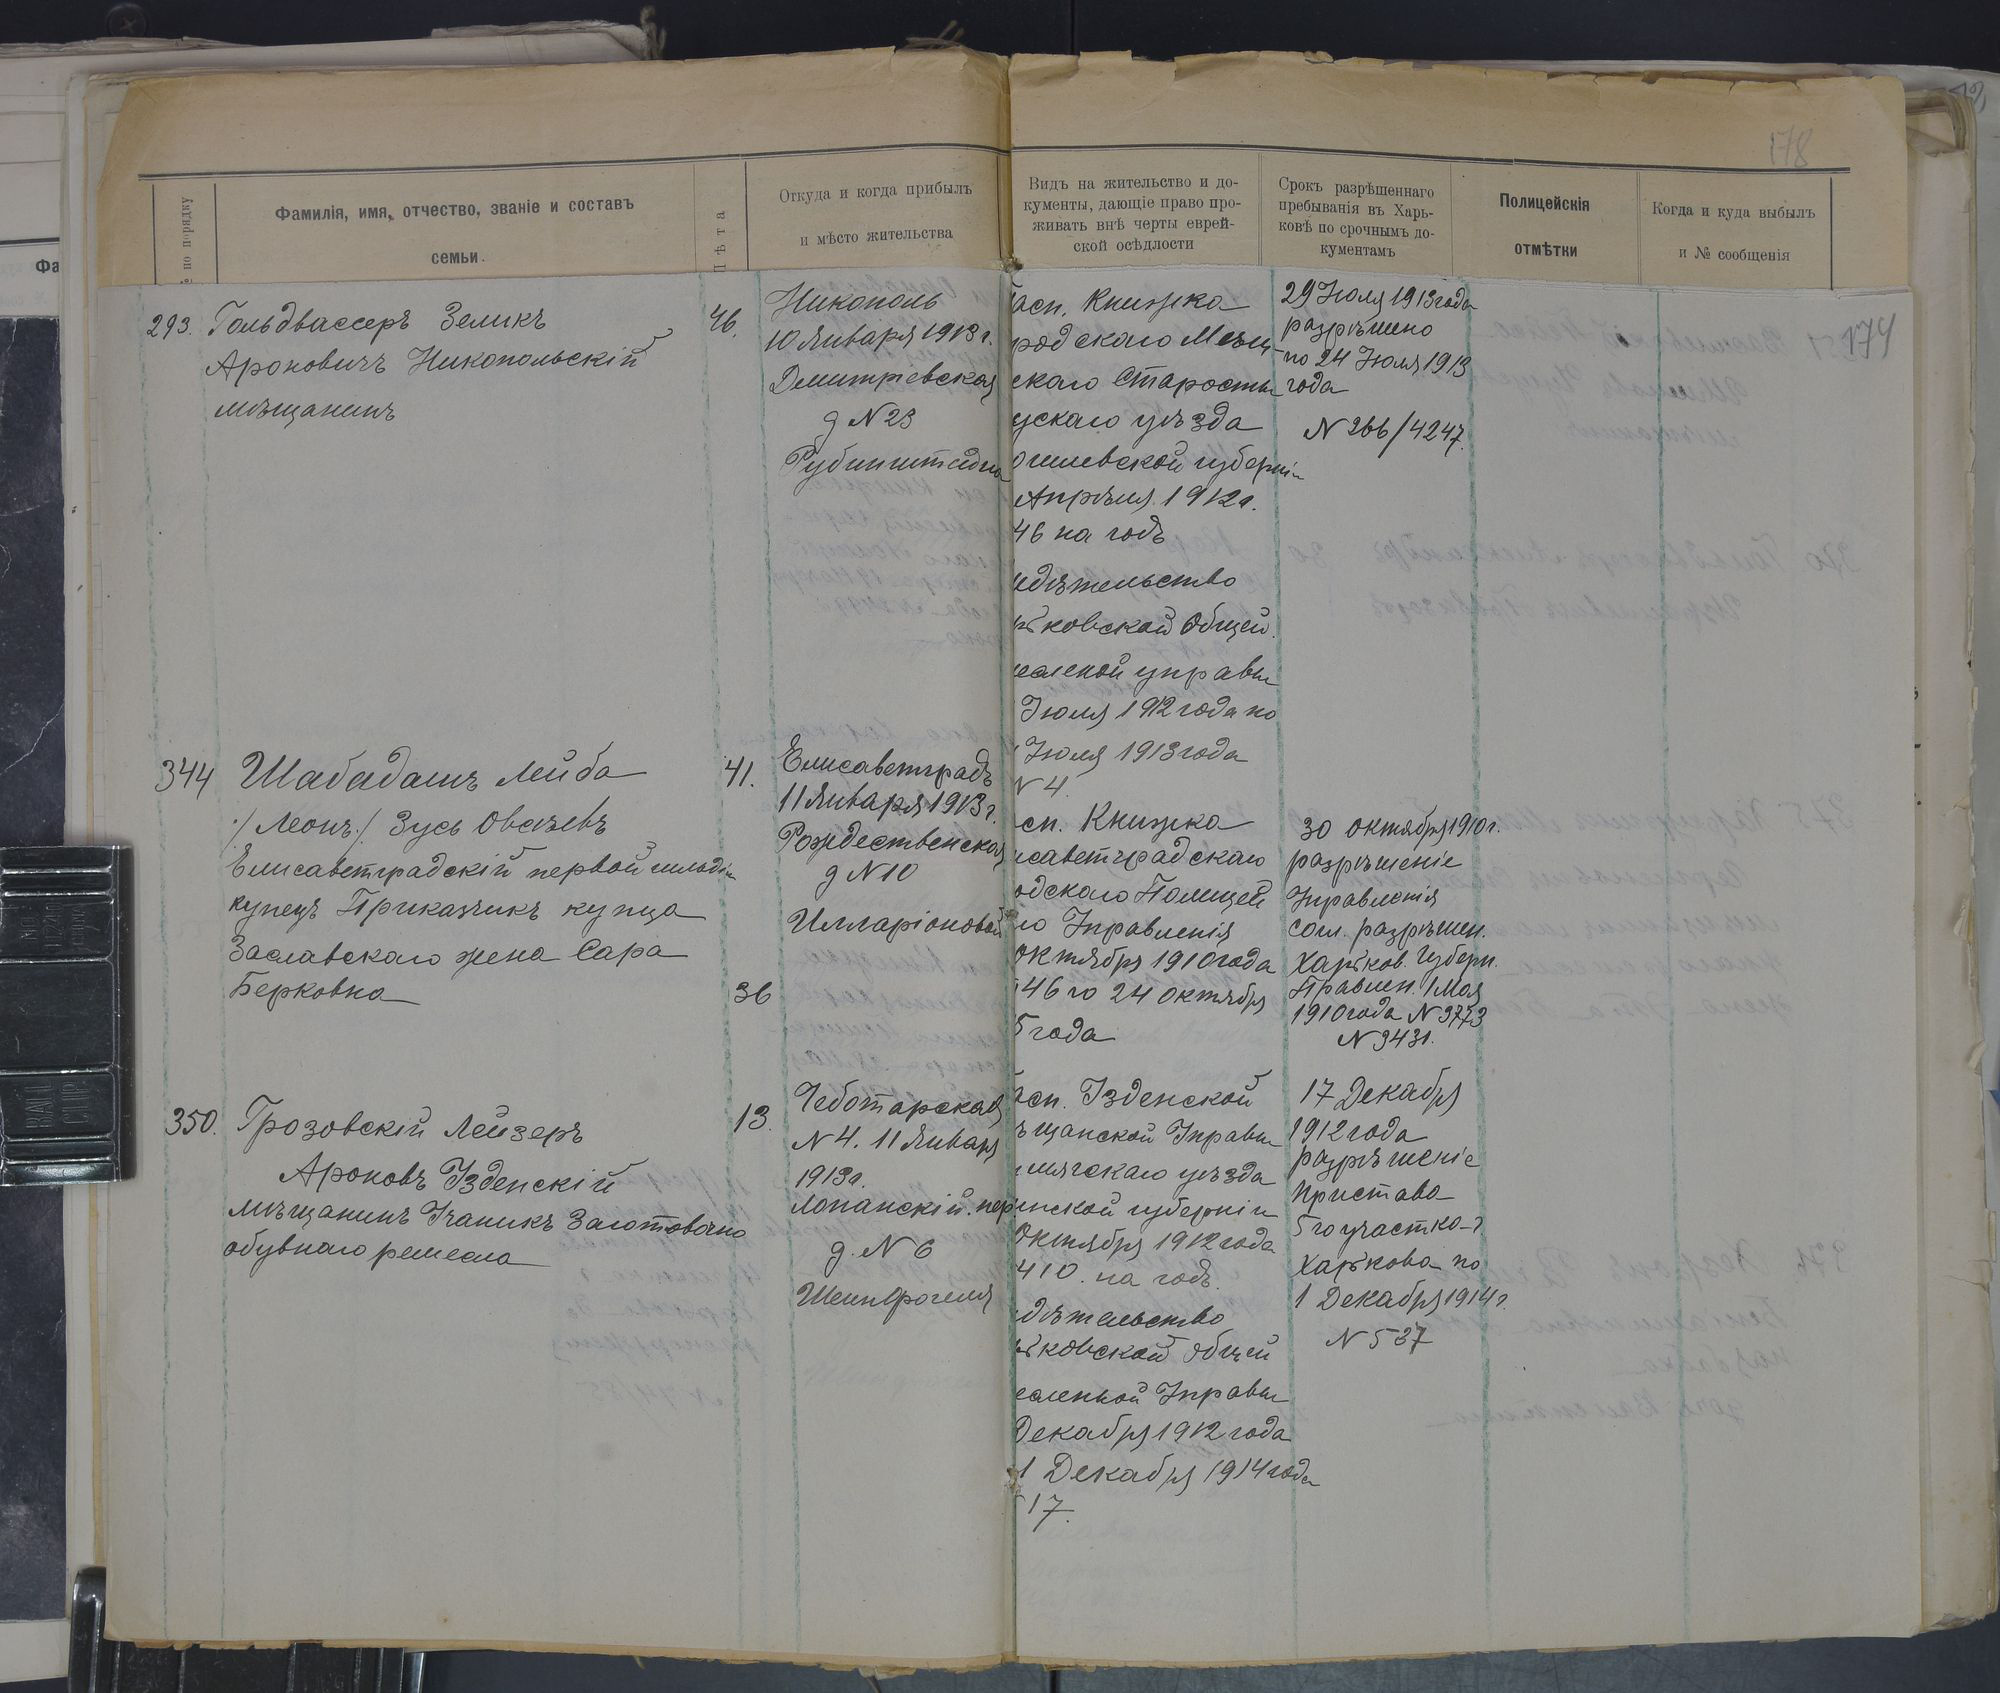 178
№ по порядку
Фамилія, имя, отчество, званіе и составъ
семьи.
Лѣта
Откуда и когда прибылъ
и мѣсто жительства
Видъ на жительство и до-
кументы, дающіе право про-
живать внѣ черты еврей-
ской осѣдлости
Срокъ разрѣшеннаго
пребыванія въ Харь-
ковѣ по срочнымъ до-
кументамъ
Полицейскія
отмѣтки
Когда и куда выбылъ
и № сообщенія
174
293. Гольдвассеръ Зеликъ
Ароновичъ Никопольскій
мѣщанинъ
46.
Никополь
10 Января 1913 г.
Дмитріевская
д N 23
Рубинштейна
асп. Книжка
родскаго Мѣщ
скаго Старосты
ускаго уѣзда
огилевской губерніи
Апрѣля 1912 г.
46 на годъ
идѣтельство
рьковской Общей
есленой управы
Іюля 1912 года по
Іюля 1913 года
N 4
29 Іюля 1913 года
разрѣшено
по 24 Іюля 1913
года
N 266/4247.
344 Шабадашъ Лейба
/Леонъ/ Зусь Овсѣевъ
Елисаветградскій первой гильдіи
купецъ Приказчикъ купца
Заславскаго жена Сара
Берковна
41.
36
Елисаветградъ
11 Января 1913 г.
Рождественская
д N 10
Илларіоновой
сп. Книжка
исаветградскаго
одскаго Полицей
го Управленія
Октября 1910 года
46 го 24 октября
5 года
30 октября 1910 г.
разрѣшеніе
Управленія
согл. разрѣшен.
Харьков. Губерн.
Правлен. 1 Мая
1910 года N 3773
N 9431.
350. Грозовскій Лейзеръ
Ароновъ Узденскій
мѣщанинъ Ученикъ Заготовочно
обувнаго ремесла
13.
Чеботарская
N 4. 11 Января
1913 г.
Лопанскій. пер
д. N 6
Шенфогеля
асп. Узденской
ѣщанской Управы
уѣзда
инской губерніи
Октября 1912 года
410. на годъ.
идѣтельство
рьковской Общей
есленной Управы
Декабря 1912 года
1 Декабря 1914 года
17.
17 Декабря
1912 года
разрѣшеніе
Пристава
5 го участка г.
Харькова по
1 Декабря 1914 г.
N 537